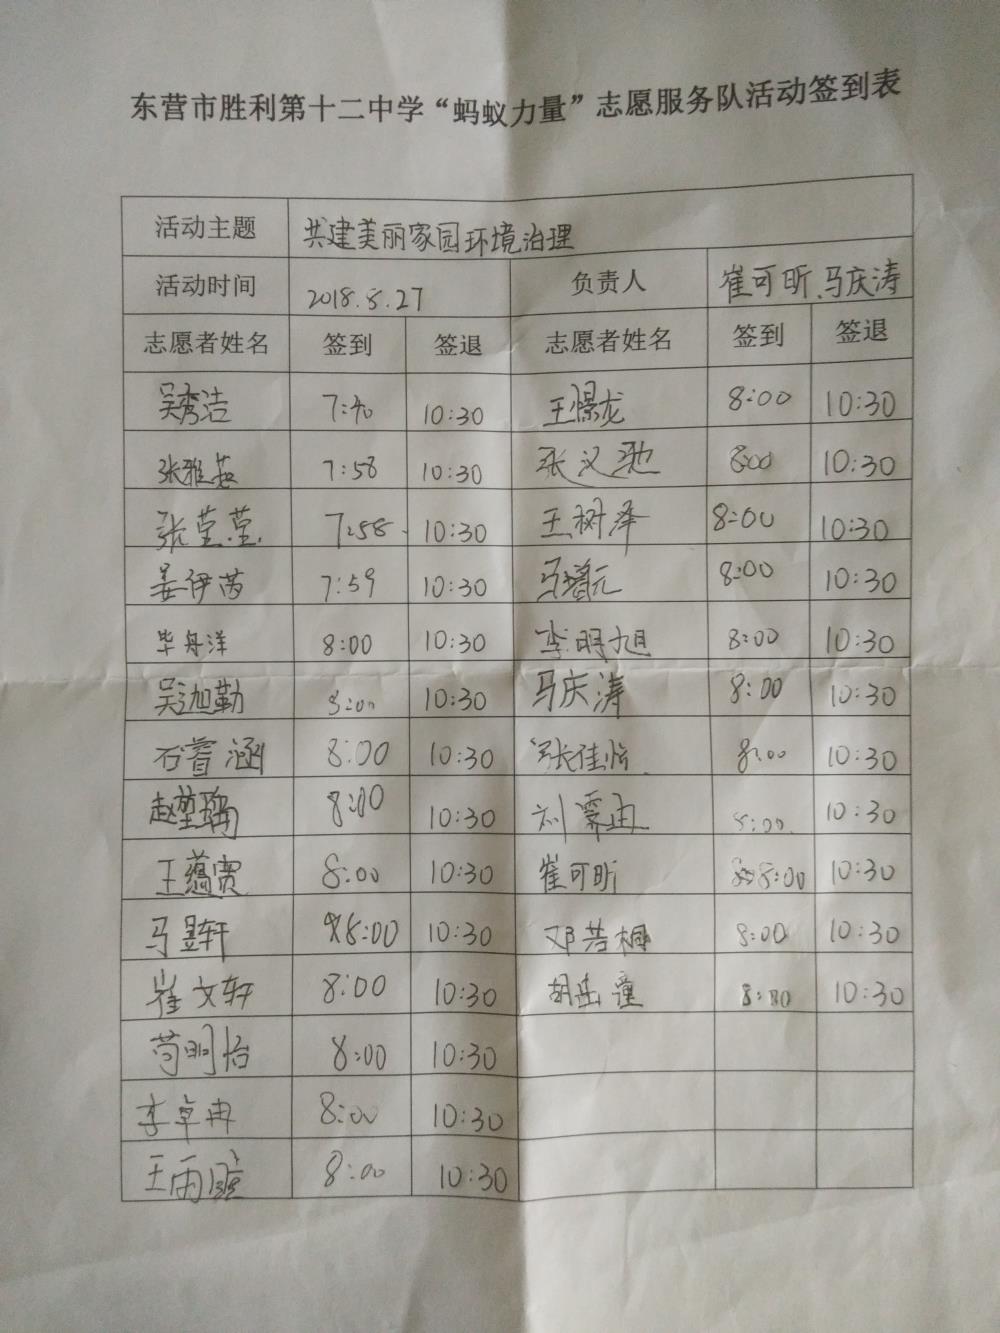 东营市胜利第十二中学“蚂蚁力量”志愿服务队活动签到表
活动主题 共建美丽家园环境治理
活动时间 2018.5.27 负责人 崔可昕、马庆涛
志愿者姓名 签到 签退 志愿者姓名 签到 签退
吴秀洁 7:40 10:30 王憬龙 8:00 10:30
张雅茹 7:58 10:30 张义驰 8:00 10:30
张莹莹 7:58 10:30 王树泽 8:00 10:30
姜伊芮 7:59 10:30 马增元 8:00 10:30
毕舟洋 8:00 10:30 李明旭 8:00 10:30
吴迦勒 8:00 10:30 马庆涛 8:00 10:30
石睿涵 8:00 10:30 张佳怡 8:00 10:30
赵 8:00 10:30 刘霖 8:00 10:30
王蕴贾 8:00 10:30 崔可昕 8:00 10:30
马昱轩 8:00 10:30 邓若桐 8:00 10:30
崔文轩 8:00 10:30 胡 8:00 10:30
苟明怡 8:00 10:30
李卓冉 8:00 10:30
王雨 8:00 10:30